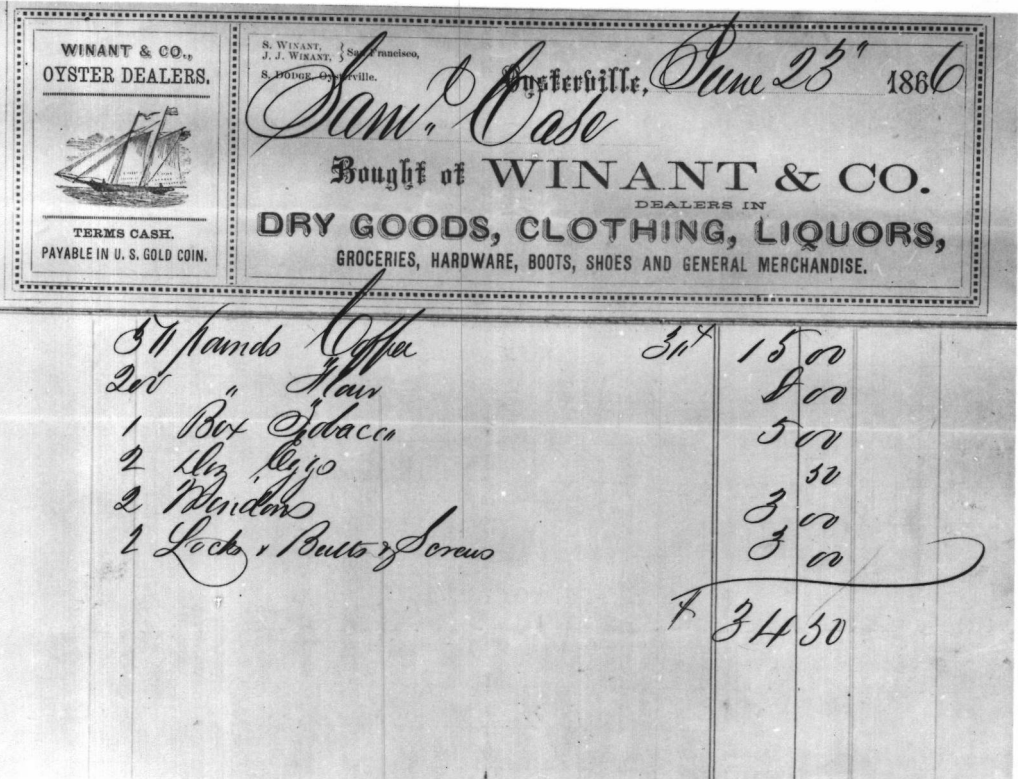 WINANT & CO.,
OYSTER DEALERS.
TERMS CASH.
PAYABLE IN U. S. GOLD COIN.
S. WINANT,
J. J. WINANT, } San Francisco,
S. DODGE, Oysterville.
Oysterville, June 25" 1866
Sam'l Case
Bought of WINANT & CO.
DEALERS IN
DRY GOODS, CLOTHING, LIQUORS,
GROCERIES, HARDWARE, BOOTS, SHOES AND GENERAL MERCHANDISE.
50 pounds Coffee 30 15 00
200 " Flour 8 00
1 Box Tobacco 5 00
2 Doz Eggs 50
2 Windows 3 00
2 Locks & Butts & Screws 3 00
$ 34 50